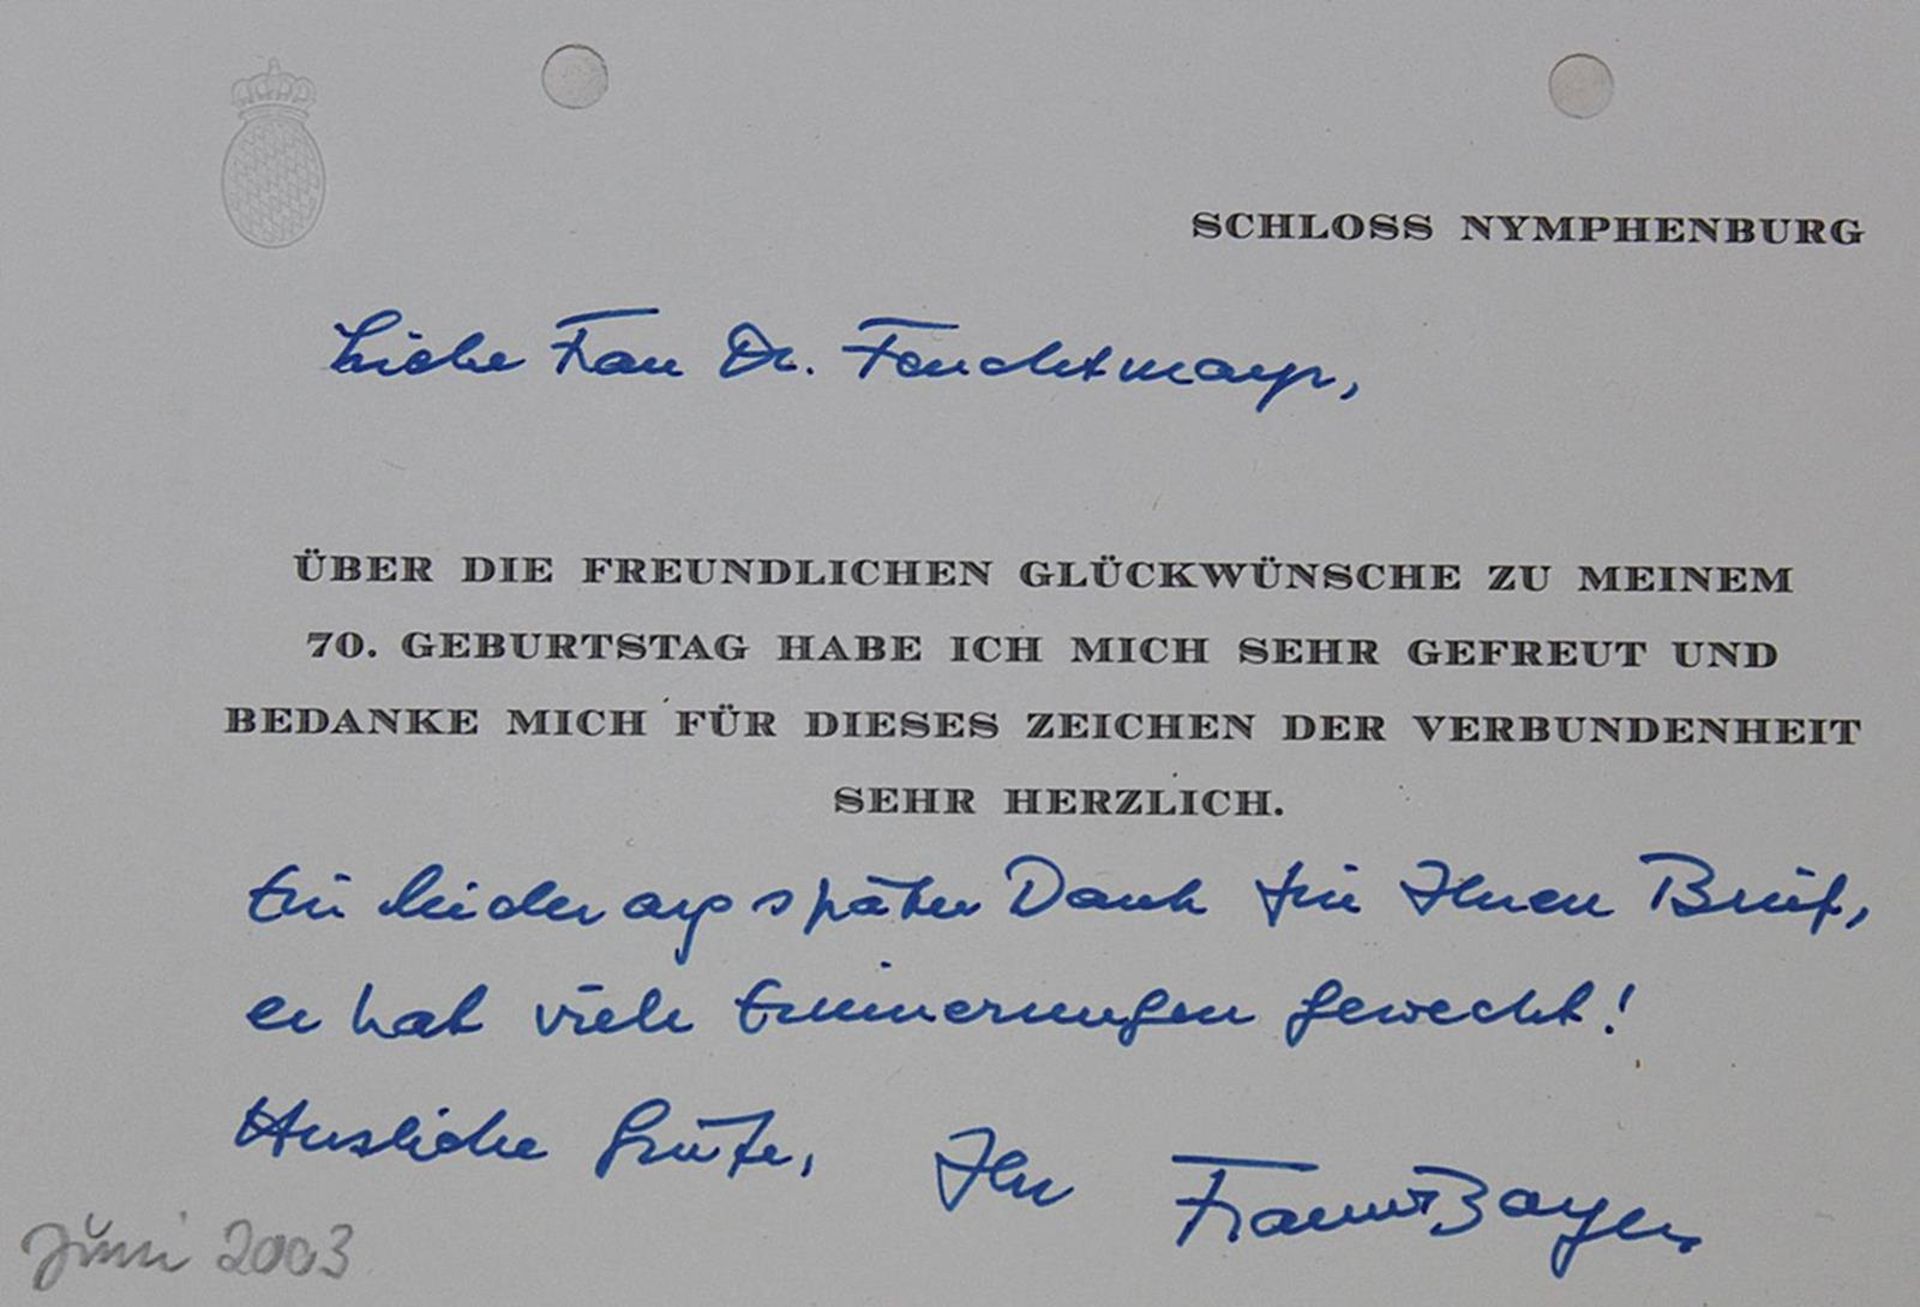 SCHLOSS NYMPHENBURG
Liebe Frau Dr. Feuchtmayr,
ÜBER DIE FREUNDLICHEN GLÜCKWÜNSCHE ZU MEINEM
70. GEBURTSTAG HABE ICH MICH SEHR GEFREUT UND
BEDANKE MICH FÜR DIESES ZEICHEN DER VERBUNDENHEIT
SEHR HERZLICH.
Ein leider arg später Dank für Ihren Brief,
er hat viele Erinnerungen geweckt!
Herzliche Grüße, Ihr Franz v Bayern
Juni 2003